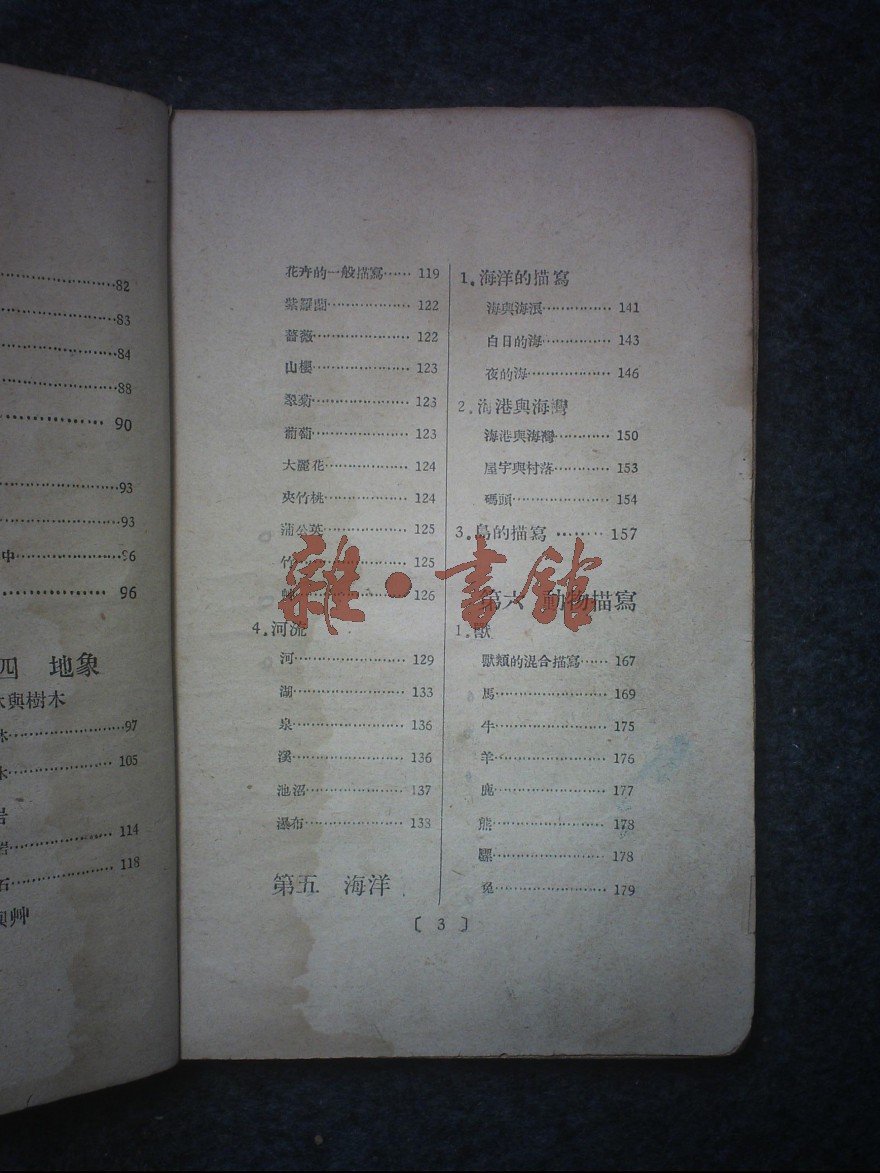 82
83
84
88
90
93
93
中 96
96
四 地象
木與樹木
97
105
岩
岩 114
石 118
與艸
花卉的一般描寫 119
紫羅蘭 122
薔薇 122
山櫻 123
翠菊 123
葡萄 123
大麗花 124
夾竹桃 124
蒲公英 125
竹 125
126
4.河流
河 129
湖 133
泉 136
溪 136
池沼 137
瀑布 133
第五 海洋
1.海洋的描寫
海與海浪 141
白日的海 143
夜的海 146
2.海港與海灣
海港與海灣 150
屋宇與村落 153
碼頭 154
3.島的描寫 157
第六 動物描寫
1.獸
獸類的混合描寫 167
馬 169
牛 175
羊 176
鹿 177
熊 178
騾 178
兔 179
〔 3 〕
雜·書館